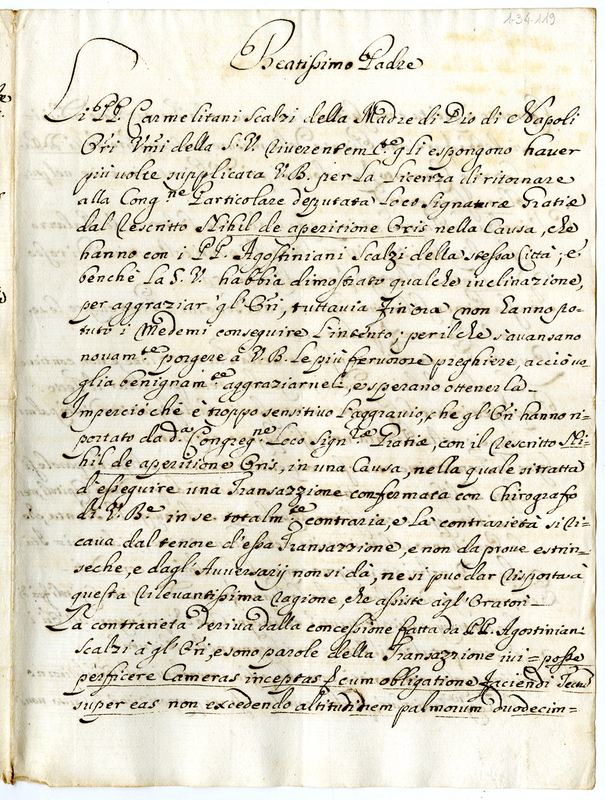 1-34-119
Beatissimo Padre
Li PP. Carmelitani Scalzi della Madre di Dio di Napoli
Orri Vmi della S. V. riverentem.te gli espongono haver
più volte supplicata V. B. per la licenza di ritornare
alla Cong.ne Particolare deputata loco Signaturæ Gratiæ
dal rescritto Nihil de aperitione Oris nella Causa, che
hanno con i PP. Agostiniani Scalzi della stessa Città; e
benche la S. V. habbia dimostrato qualche inclinazione,
per aggraziar gl'Orri, tuttavia fin'ora non hanno po=
tuto i Medemi conseguire l'intento; per il che s'avansano
novam.te porgere à V. B. le più fervorose preghiere, acciò vo=
glia benignam.te aggraziarneli, e sperano ottenerla_
Imperciò che è troppo sensitivo l'aggravio, che gl'Orri hanno ri=
portato da d.a Congreg.ne loco Sign.ræ Gratiæ, con il rescritto Ni=
hil de aperitione Oris, in una Causa, nella quale si tratta
d'esseguire una Transazzione confermata con Chirografo
di V. B.e in se totalm.te contraria, e la contrarietà si ri=
cava dal tenore d'essa Transazzione, e non da prove estrin=
seche, e dagl'Avversarij non si dà, ne si può dar risposta à
questa rilevantissima ragione, che assiste agl'Oratori_
La contrarietà deriva dalla concessione fatta da PP. Agostiniani
Scalzi à gl'Orri, e sono parole della Transazzione ivi= posse
perficere Cameras inceptas cum obligatione faciendi
super eas non excedendo altitudinem palmorum duodecim=